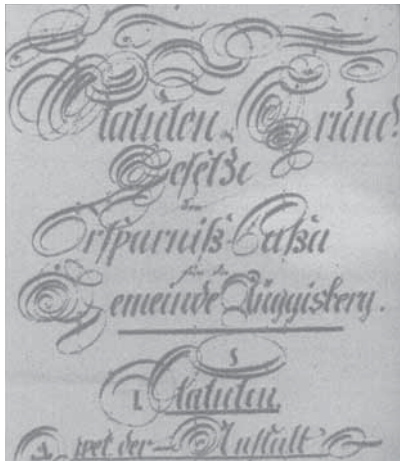 Statuten & Grund:
Gesetze
der
Ersparniß-Caßa
für die
Gemeinde Rüggisberg.
I. Statuten.
Zwek der Anstalt